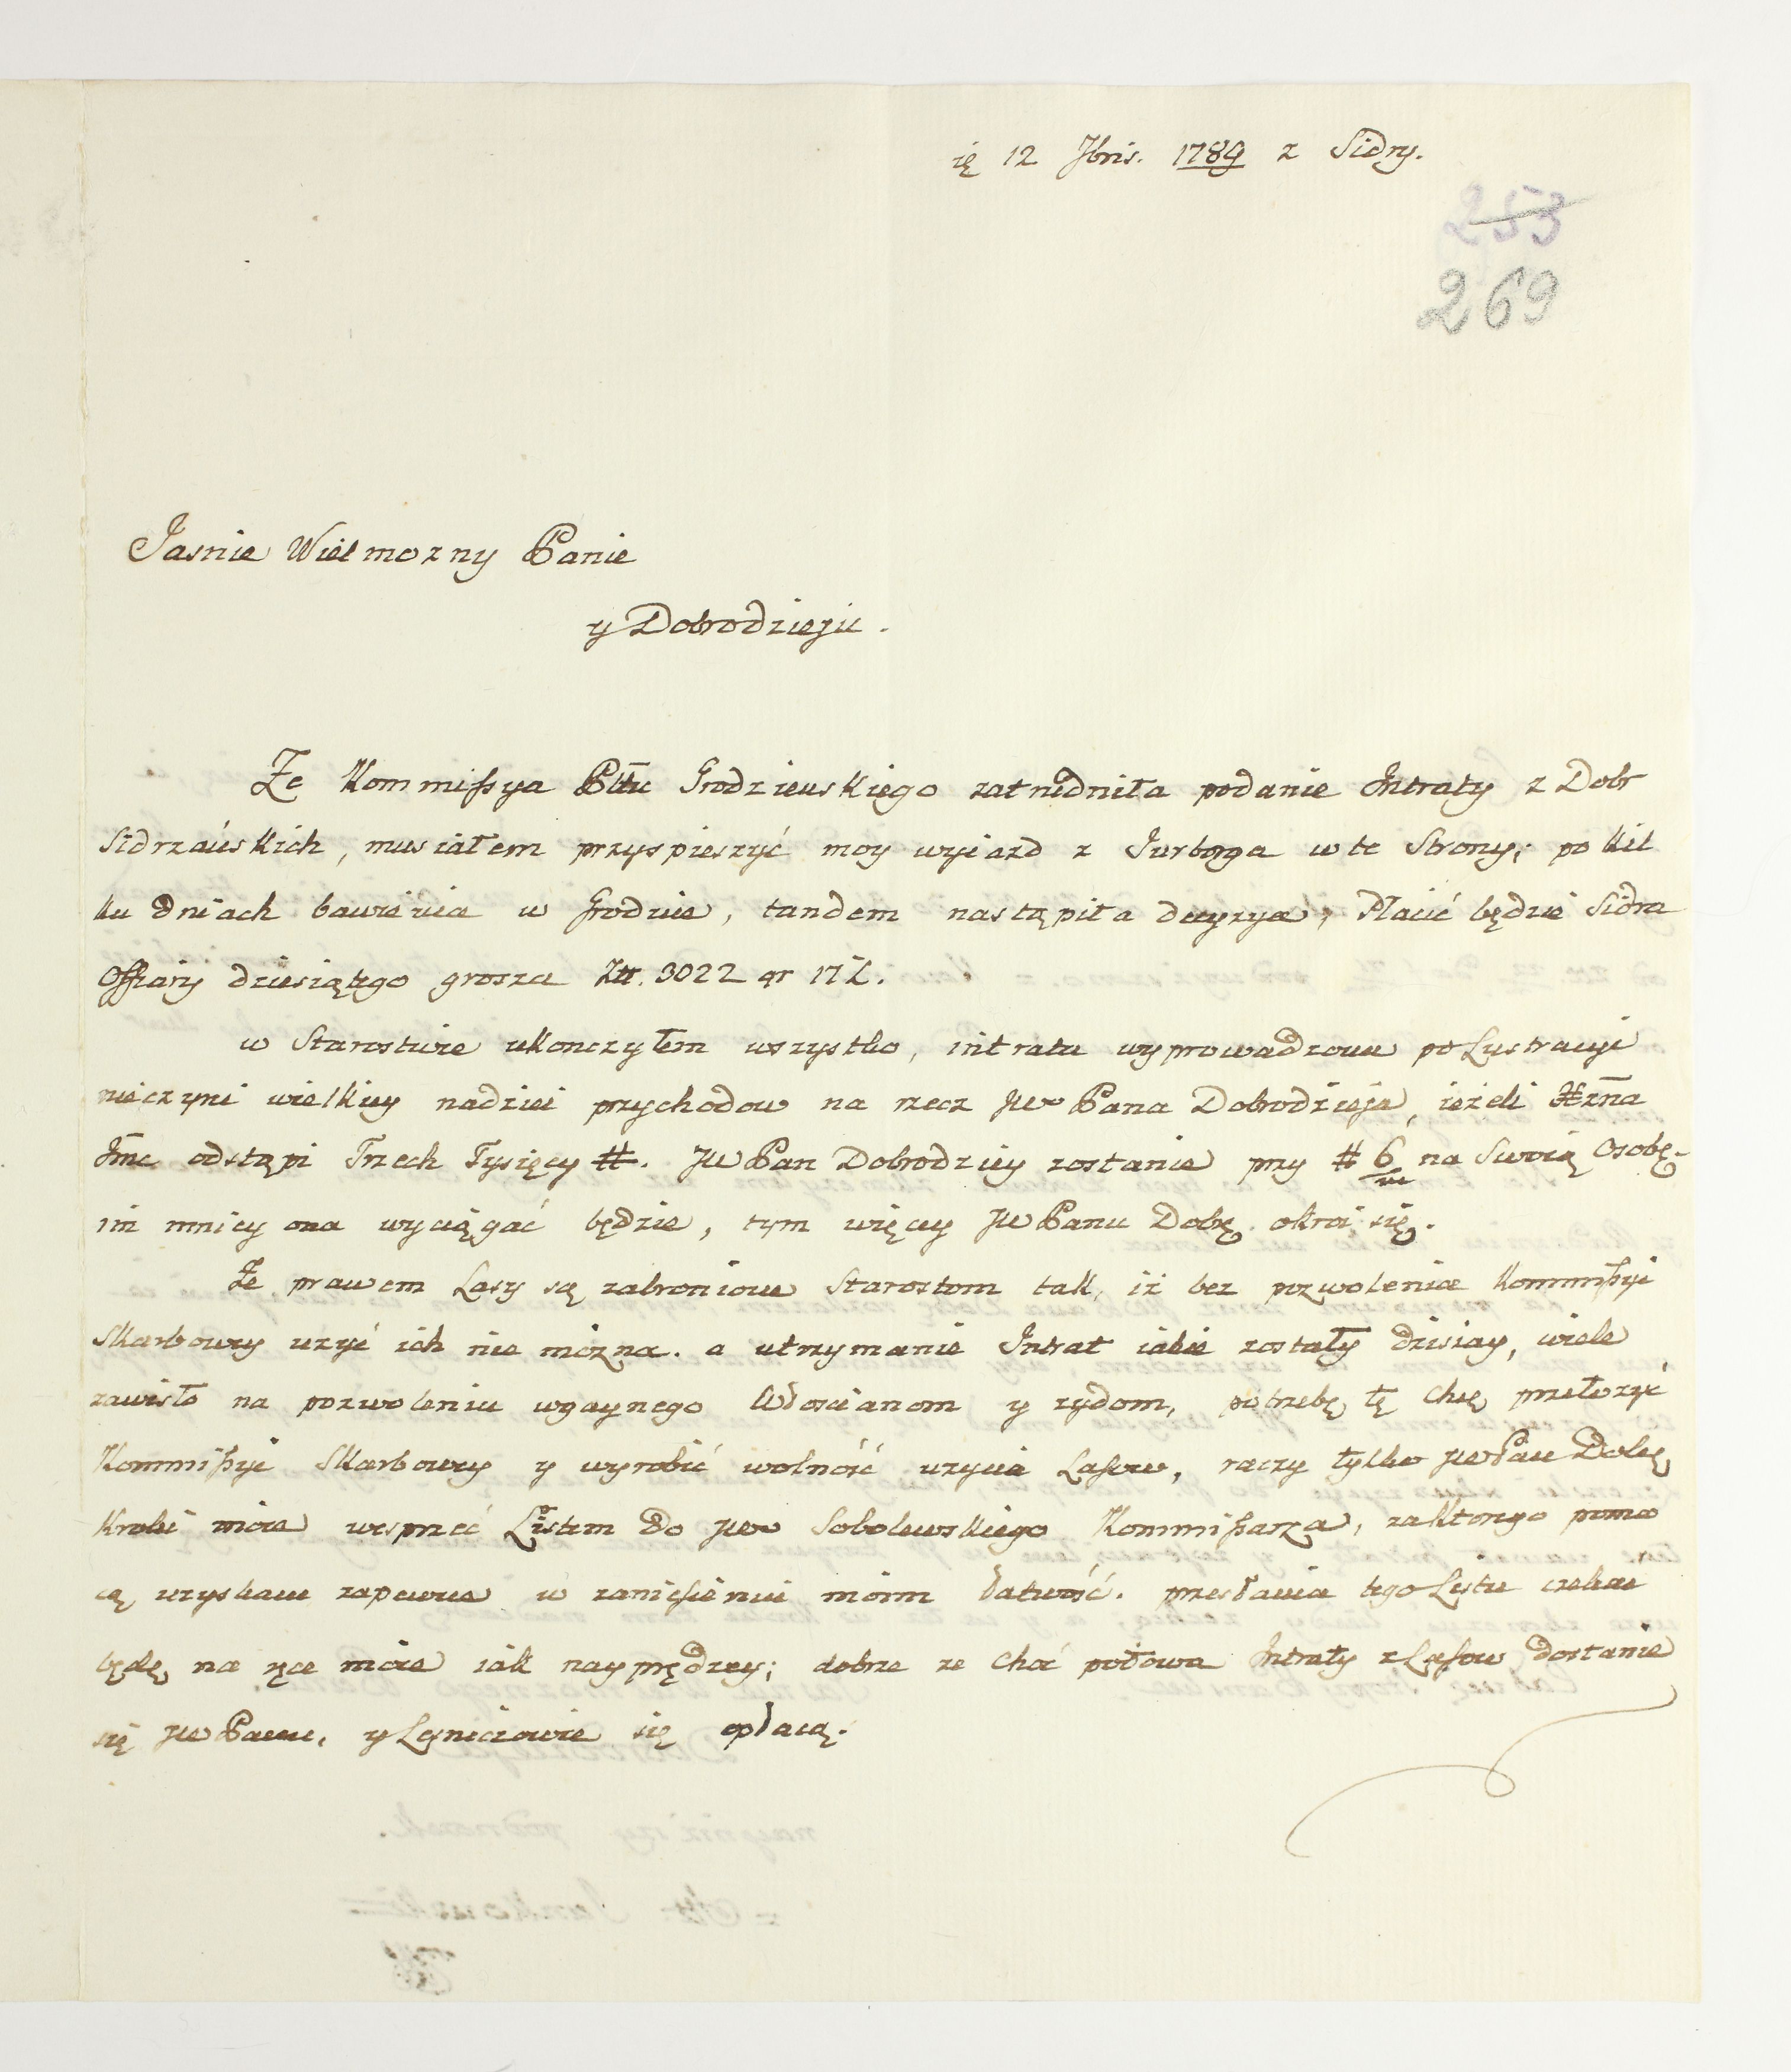 ię 12 Jbris. 1789 z Sidry.
253
269
Jasnie Wielmozny Panie
y Dobrodzieju.
Ze Kommissya Pttu Grodzienskiego zatrudniła podanie Intraty z Dobr
Sidrzańskich, musiałem przyspieszyć moy wyiazd z Jurborga w te Strony; po kil
ku dniach bawienia w Grodnie, tandem nastąpiła decyzya, Płacić będzie Sidra
Offiary dziesiątego grosza Ztt. 3022 gr 17
w Starostwie ukonczyłem wszystko, intrata wyprowadzona po Lustracyi
nieczyni wielkiey nadziei przychodow na rzecz JW Pana Dobrodzieja, ieżeli
Jmc odstąpi Trzech Tysięcy #. JW Pan Dobrodziey zostanie przy # 6 na Swoią Osobę.
im mniey ona wyciągać będzie, tym więcey JW Panu Dobr. okroi się.
Ze prawem Lasy są zabronione Starostom tak, iż bez pozwolenia Kommissyi
Skarbowey uzyć ich nie mozna. a utrzymanie Intrat iakie zostały dzisiay, wiele
zawisło na pozwoleniu wgaynego Włoscianom y zydom, potrzebę tę chcę przełozyć
Kommissyi Skarbowey y wyrobić wolność uzycia Lasow, raczy tylko JW Pan Dobr
kroki moie wesprzeć Listem do JW Sobolewskiego Kommissarza, za ktorego pomo
cą uzyskam zapewne w zaniesieniu moim łatwość. przesłania tego Listu czekać
będę na ręce moie iak nayprędzey; dobrze ze choć połowa Intraty z Lasow dostanie
się JW Panu, y Lesniczowie się opłacą.